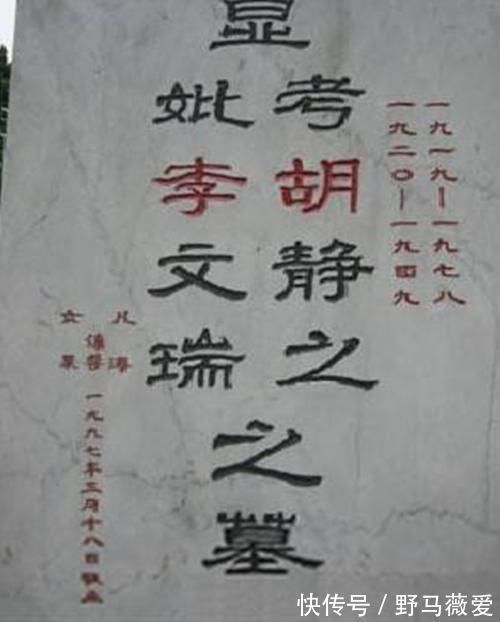 一九一九—一九七八
一九二〇—一九四九
显
考胡静之
妣李文瑞
之墓
儿
女
一九九七年三月十八日敬立
快传号／野马薇爱